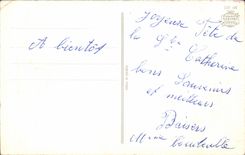 A bientôt
Joyeuse Fête de
la Ste Catherine
bons Souvenirs
et meilleurs
Baisers
Mme